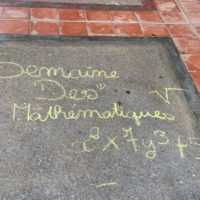 Semaine
Des
Mathematiques √
e² x 7y³ +5